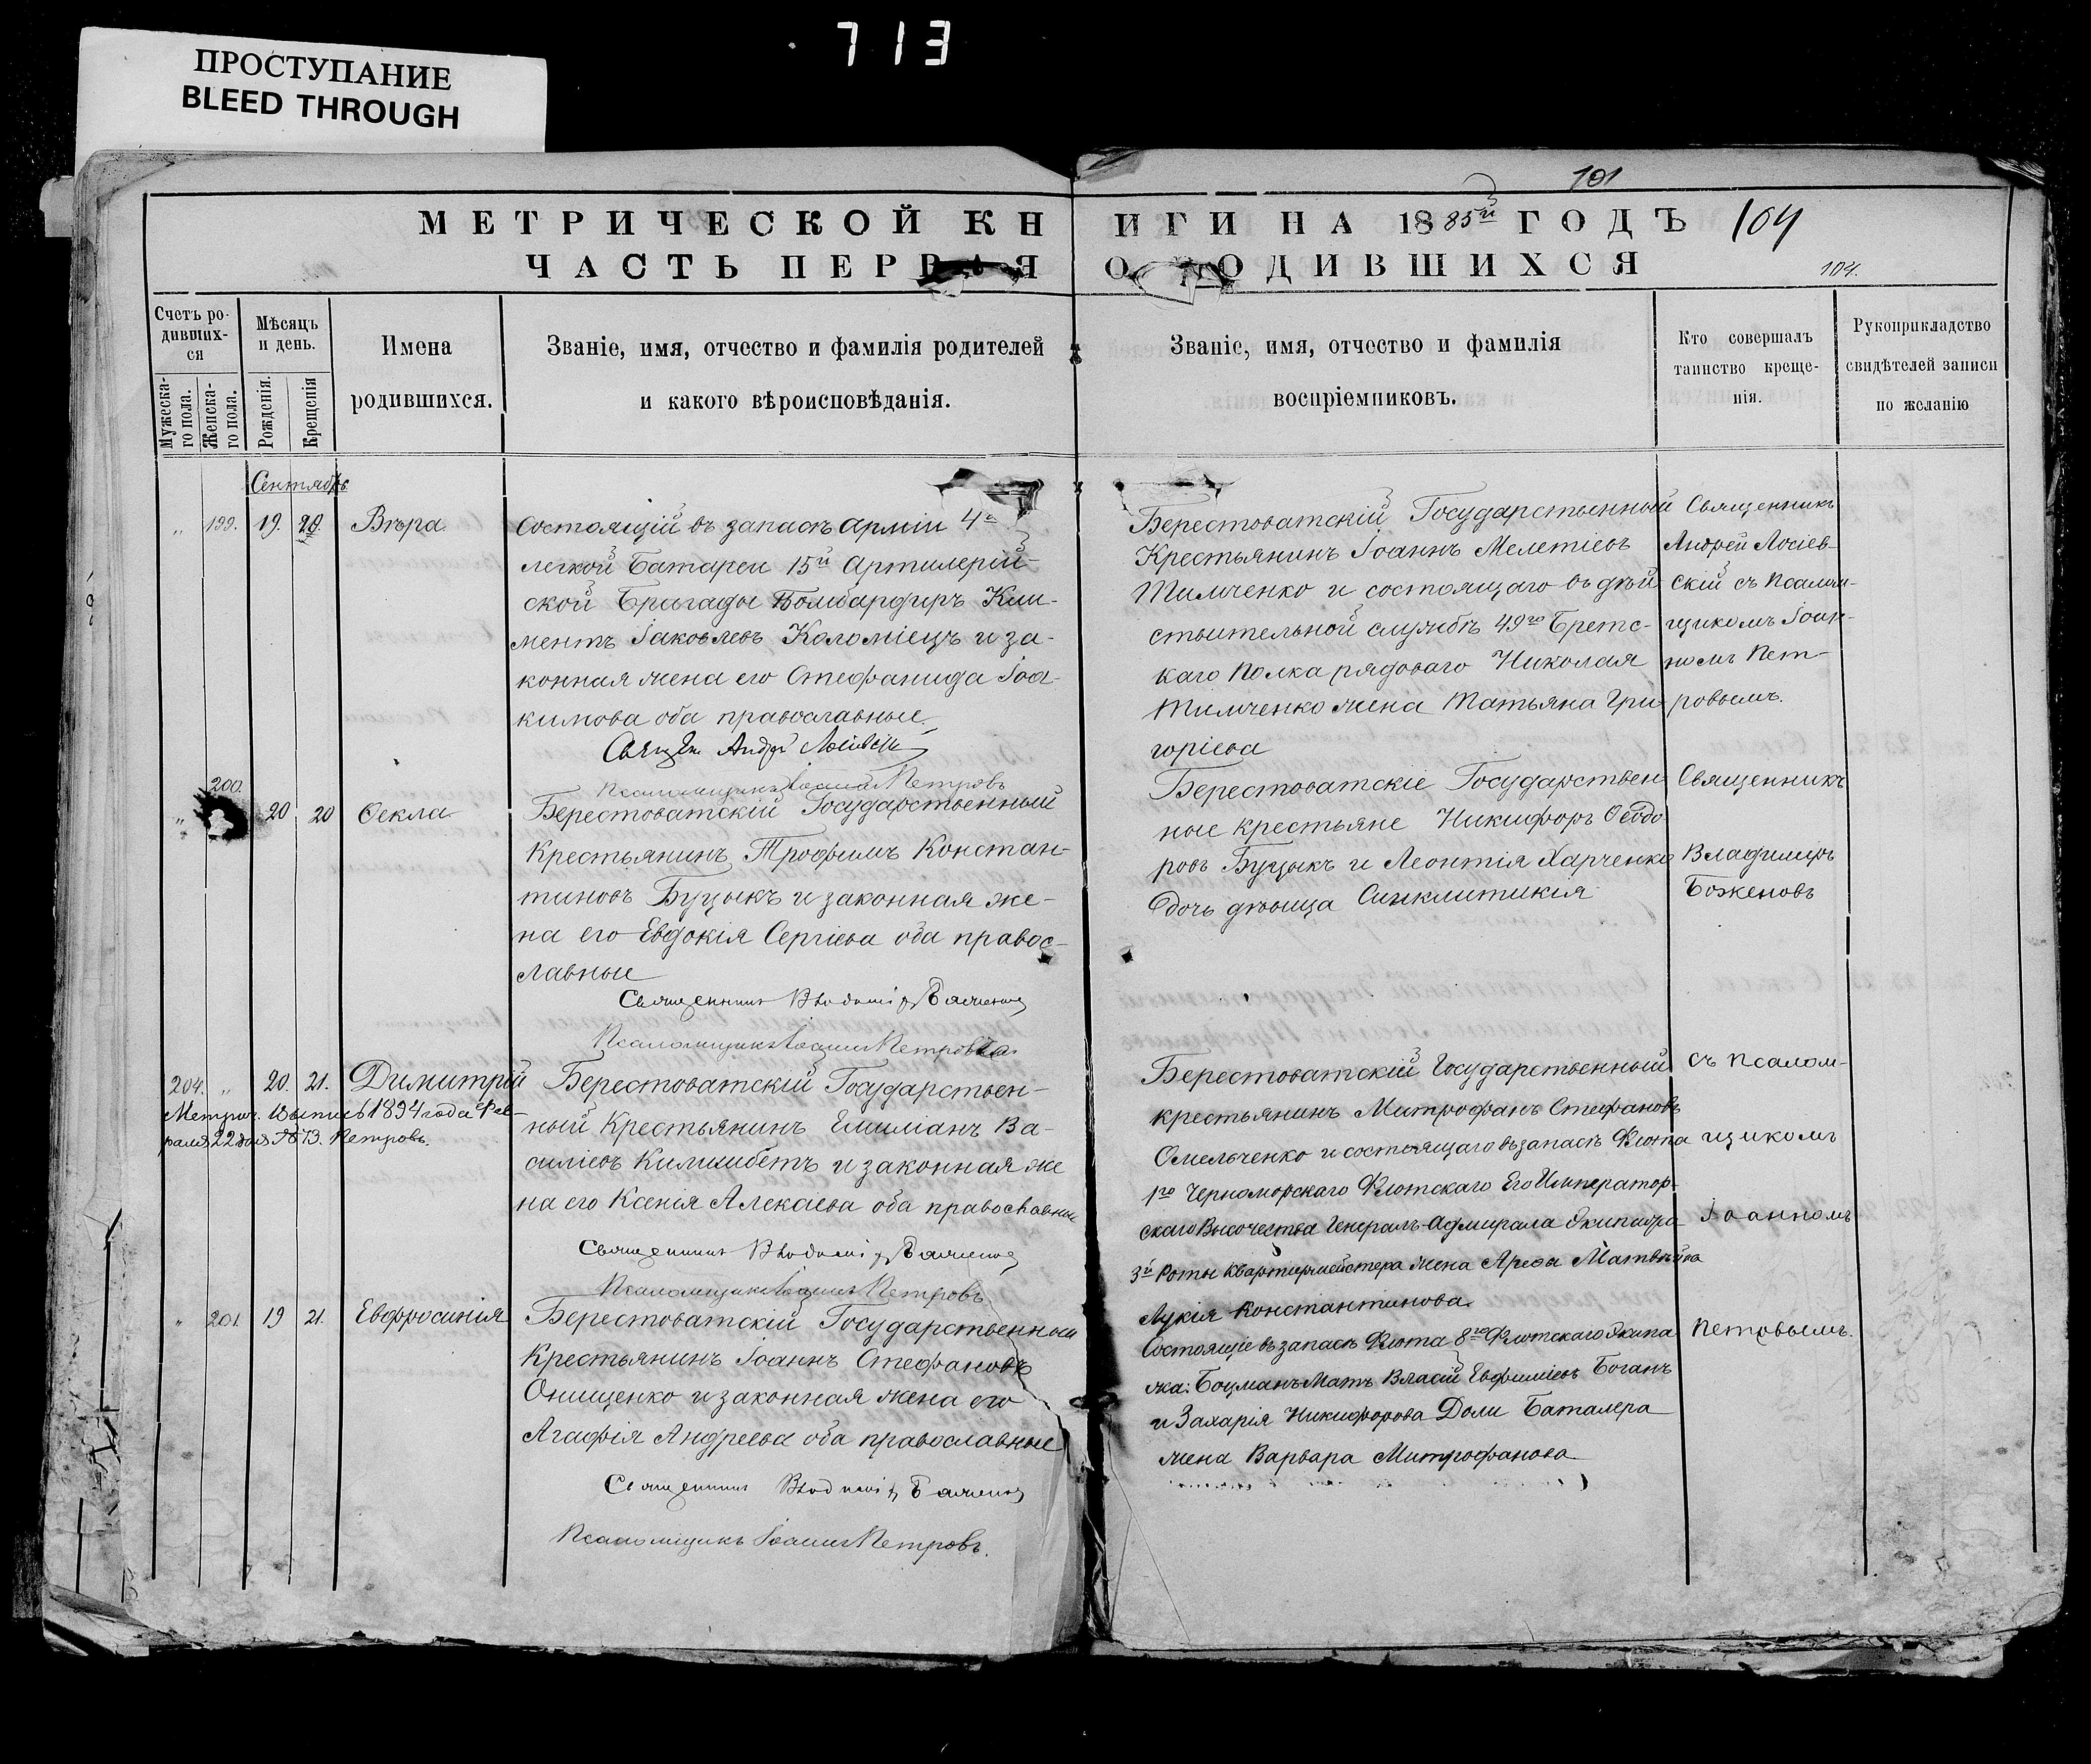 713
ПРОСТУПАНИЕ
BLEED THROUGH
101
МЕТРИЧЕСКОЙ КНИГИ НА 1885й ГОДЪ 104
ЧАСТЬ ПЕРВАЯ О РОДИВШИХСЯ
104.
Счетъ ро-
дивших-
ся
Мужеска-
го пола.
Женска-
го пола.
Мѣсяцъ
и день.
Рожденія.
Крещенія
Имена
родившихся.
Званіе, имя, отчество и фамилія родителей
и какого вѣроисповѣданія.
Званіе, имя, отчество и фамилія
воспріемниковъ.
Кто совершалъ
таинство креще-
нія.
Рукоприкладство
свидѣтелей записи
по желанію
Сентябрь
„ 199. 19. 20. Вѣра
Состоящій въ запасѣ арміи 4й
легкой Батареи 15й Артилерій-
ской Брагады Бомбардиръ Кли-
ментъ Іаковлевъ Коломіецъ и за-
конная жена его Стефанида Іоа-
кимова оба православные
Священ. Андрей Лосіевскій
Псаломщикъ Іоаннъ Петровъ
Берестоватскій Государственный
Крестьянинъ Іоаннъ Мелетіевъ
Тимченко и состоящаго въ дѣй
ствительной службѣ 49го Бретс-
каго Полка рядоваго Николая
Тимченко жена Татьяна Гри
горіева
Священникъ
Андрей Лосіев-
скій съ псалом-
щикомъ Іоан-
номъ Пет-
ровымъ.
„ 200. 20 20 Ѳекла
Берестоватскій Государственный
Крестьянинъ Трофимъ Констан-
тиновъ Буцыкъ и законная же-
на его Евдокія Сергіева оба правос-
лавные
Священникъ Владиміръ Боженовъ
Псаломщикъ Іоаннъ Петровъ
Берестоватскіе Государствен
ные крестьяне Никифоръ Ѳеодо
ровъ Буцыкъ и Леонтія Харченко
дочь дѣвица Синклитикія
Священникъ
Владиміръ
Боженовъ
204. „ 20. 21. Димитрій
Метрич. выпись 1894 года Фев-
раля 22 дня № 13. Петровъ.
Берестоватскій Государствен-
ный Крестьянинъ Емиліанъ Ва-
силіевъ Килимбетъ и законная же
на его Ксенія Алексіева оба православные
Священникъ Владиміръ Боженовъ
Псаломщикъ Іоаннъ Петровъ
Берестоватскій Государственный
крестьянинъ Митрофанъ Стефановъ
Омельченко и состоящаго въ запасѣ Флота
1го Черноморскаго Флотскаго Его Император-
скаго Высочества Генералъ-Адмирала Экипажа
3й Роты Квартирмейстера жена Арефа Матвѣйва
Лукія Константинова.
съ псалом-
щикомъ
Іоанномъ
„ 201. 19 21. Евфросинія
Берестоватскій Государственный
Крестьянинъ Іоаннъ Стефановъ
Онищенко и законная жена его
Агафія Андреева оба православные
Священникъ Владиміръ Боженовъ
Псаломщикъ Іоаннъ Петровъ.
Состоящіе въ запасѣ Флота 8го Флотскаго Экипа
жа: Боцманъ Матъ Власій Евфиміевъ Боганъ
и Захарія Никифорова Доли Баталера
жена Варвара Митрофанова
Петровымъ.